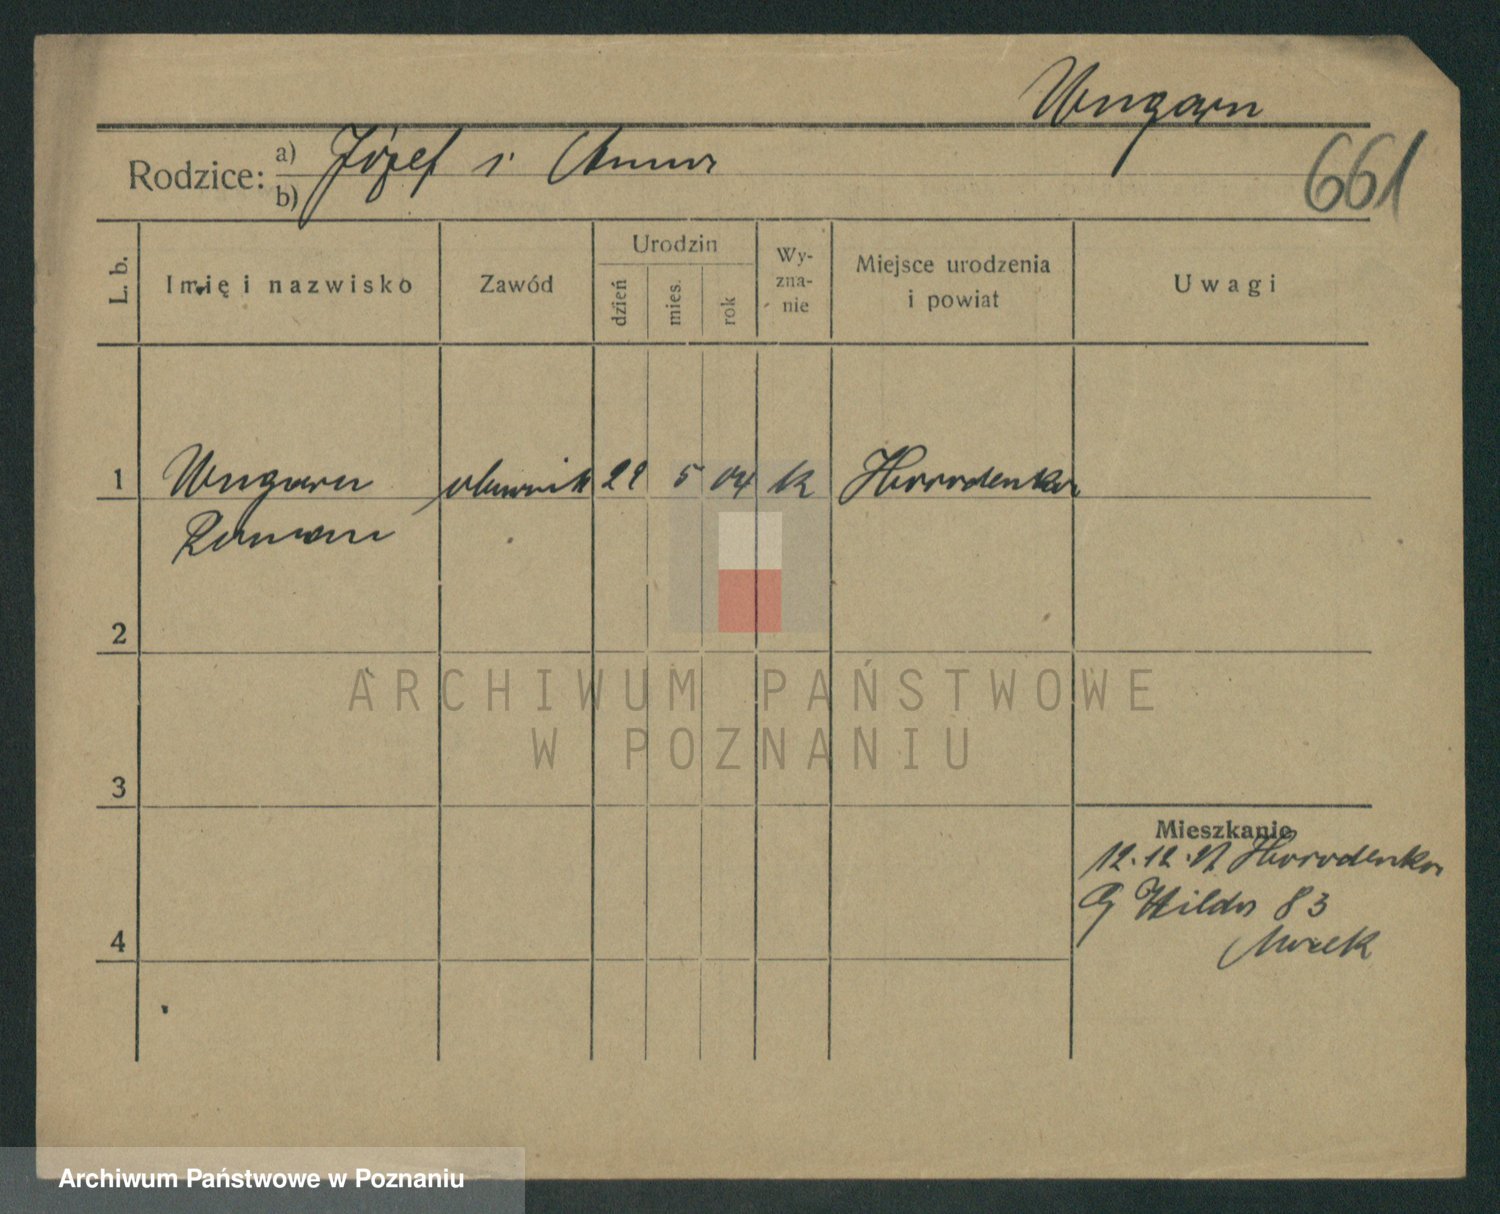 Ungarn
Rodzice: a) Józef i Anna
b)
661
L. b.
Imię i nazwisko
Zawód
Urodzin
dzień
mies.
rok
Wy-
zna-
nie
Miejsce urodzenia
i powiat
Uwagi
1 Ungarn 22 5 04 k Horodenka
Roman
2
3
4
Mieszkanie
12.12.27 Horodenka
G Wilda 83
ARCHIWUM PAŃSTWOWE
W POZNANIU
Archiwum Państwowe w Poznaniu